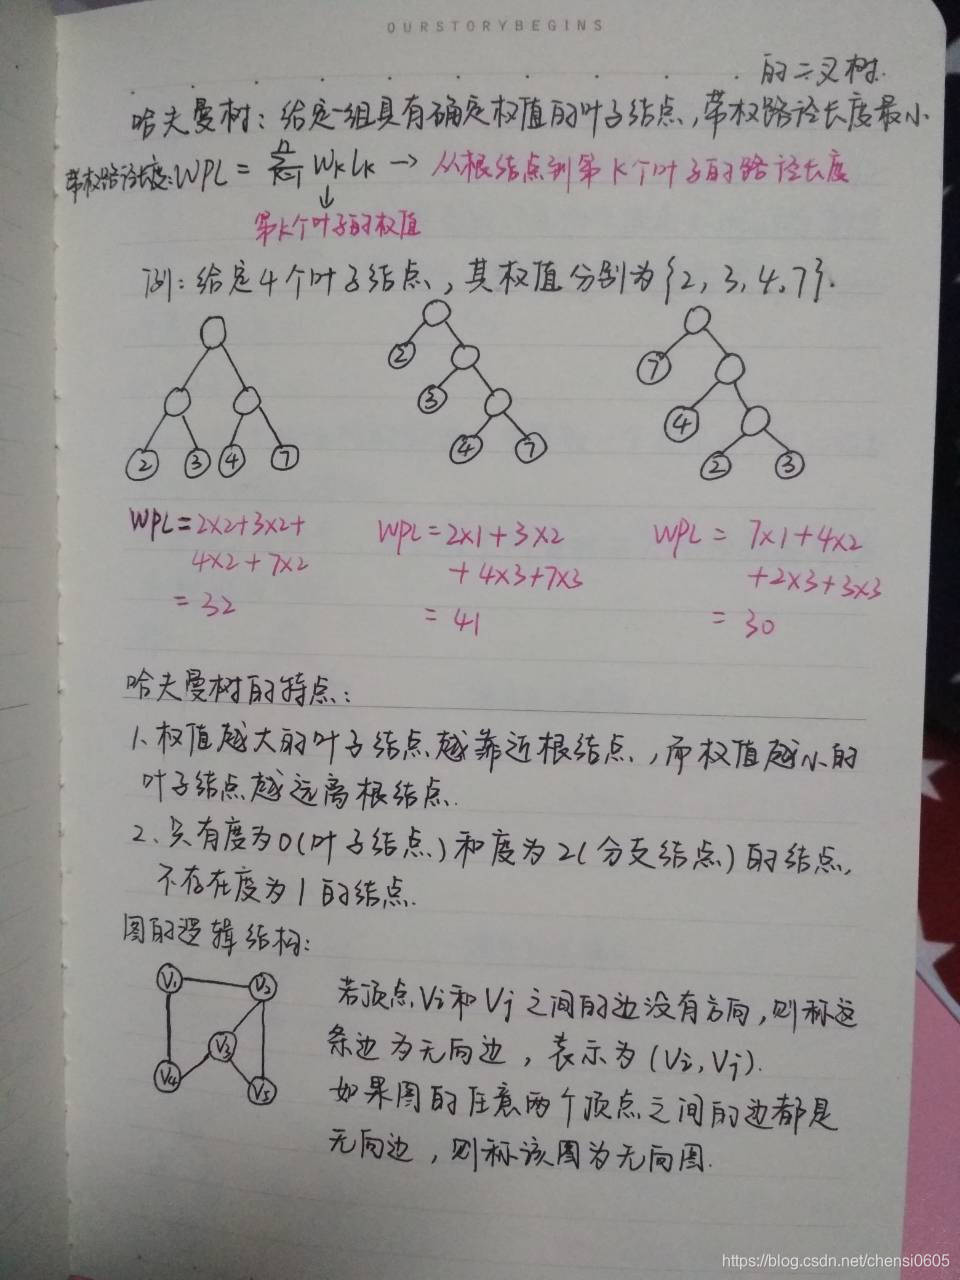 OURSTORYBEGINS
的二叉树.
哈夫曼树: 给定一组具有确定权值的叶子结点, 带权路径长度最小
带权路径长度: WPL = n∑k=1 WkLk → 从根结点到第k个叶子的路径长度
↓
第k个叶子的权值
例: 给定4个叶子结点, 其权值分别为{2, 3, 4, 7}.
2 3 4 7
2 3 4 7
7 4 2 3
WPL=2×2+3×2+
4×2+7×2
=32
WPL=2×1+3×2
+4×3+7×3
=41
WPL= 7×1+4×2
+2×3+3×3
= 30
哈夫曼树的特点:
1、权值越大的叶子结点越靠近根结点, 而权值越小的
叶子结点越远离根结点.
2、只有度为0(叶子结点)和度为2(分支结点)的结点,
不存在度为1的结点.
图的逻辑结构:
V1 V2
V3
V4 V5
若顶点Vi和Vj之间的边没有方向, 则称这
条边为无向边, 表示为(Vi, Vj).
如果图的任意两个顶点之间的边都是
无向边, 则称该图为无向图.
https://blog.csdn.net/chensi0605